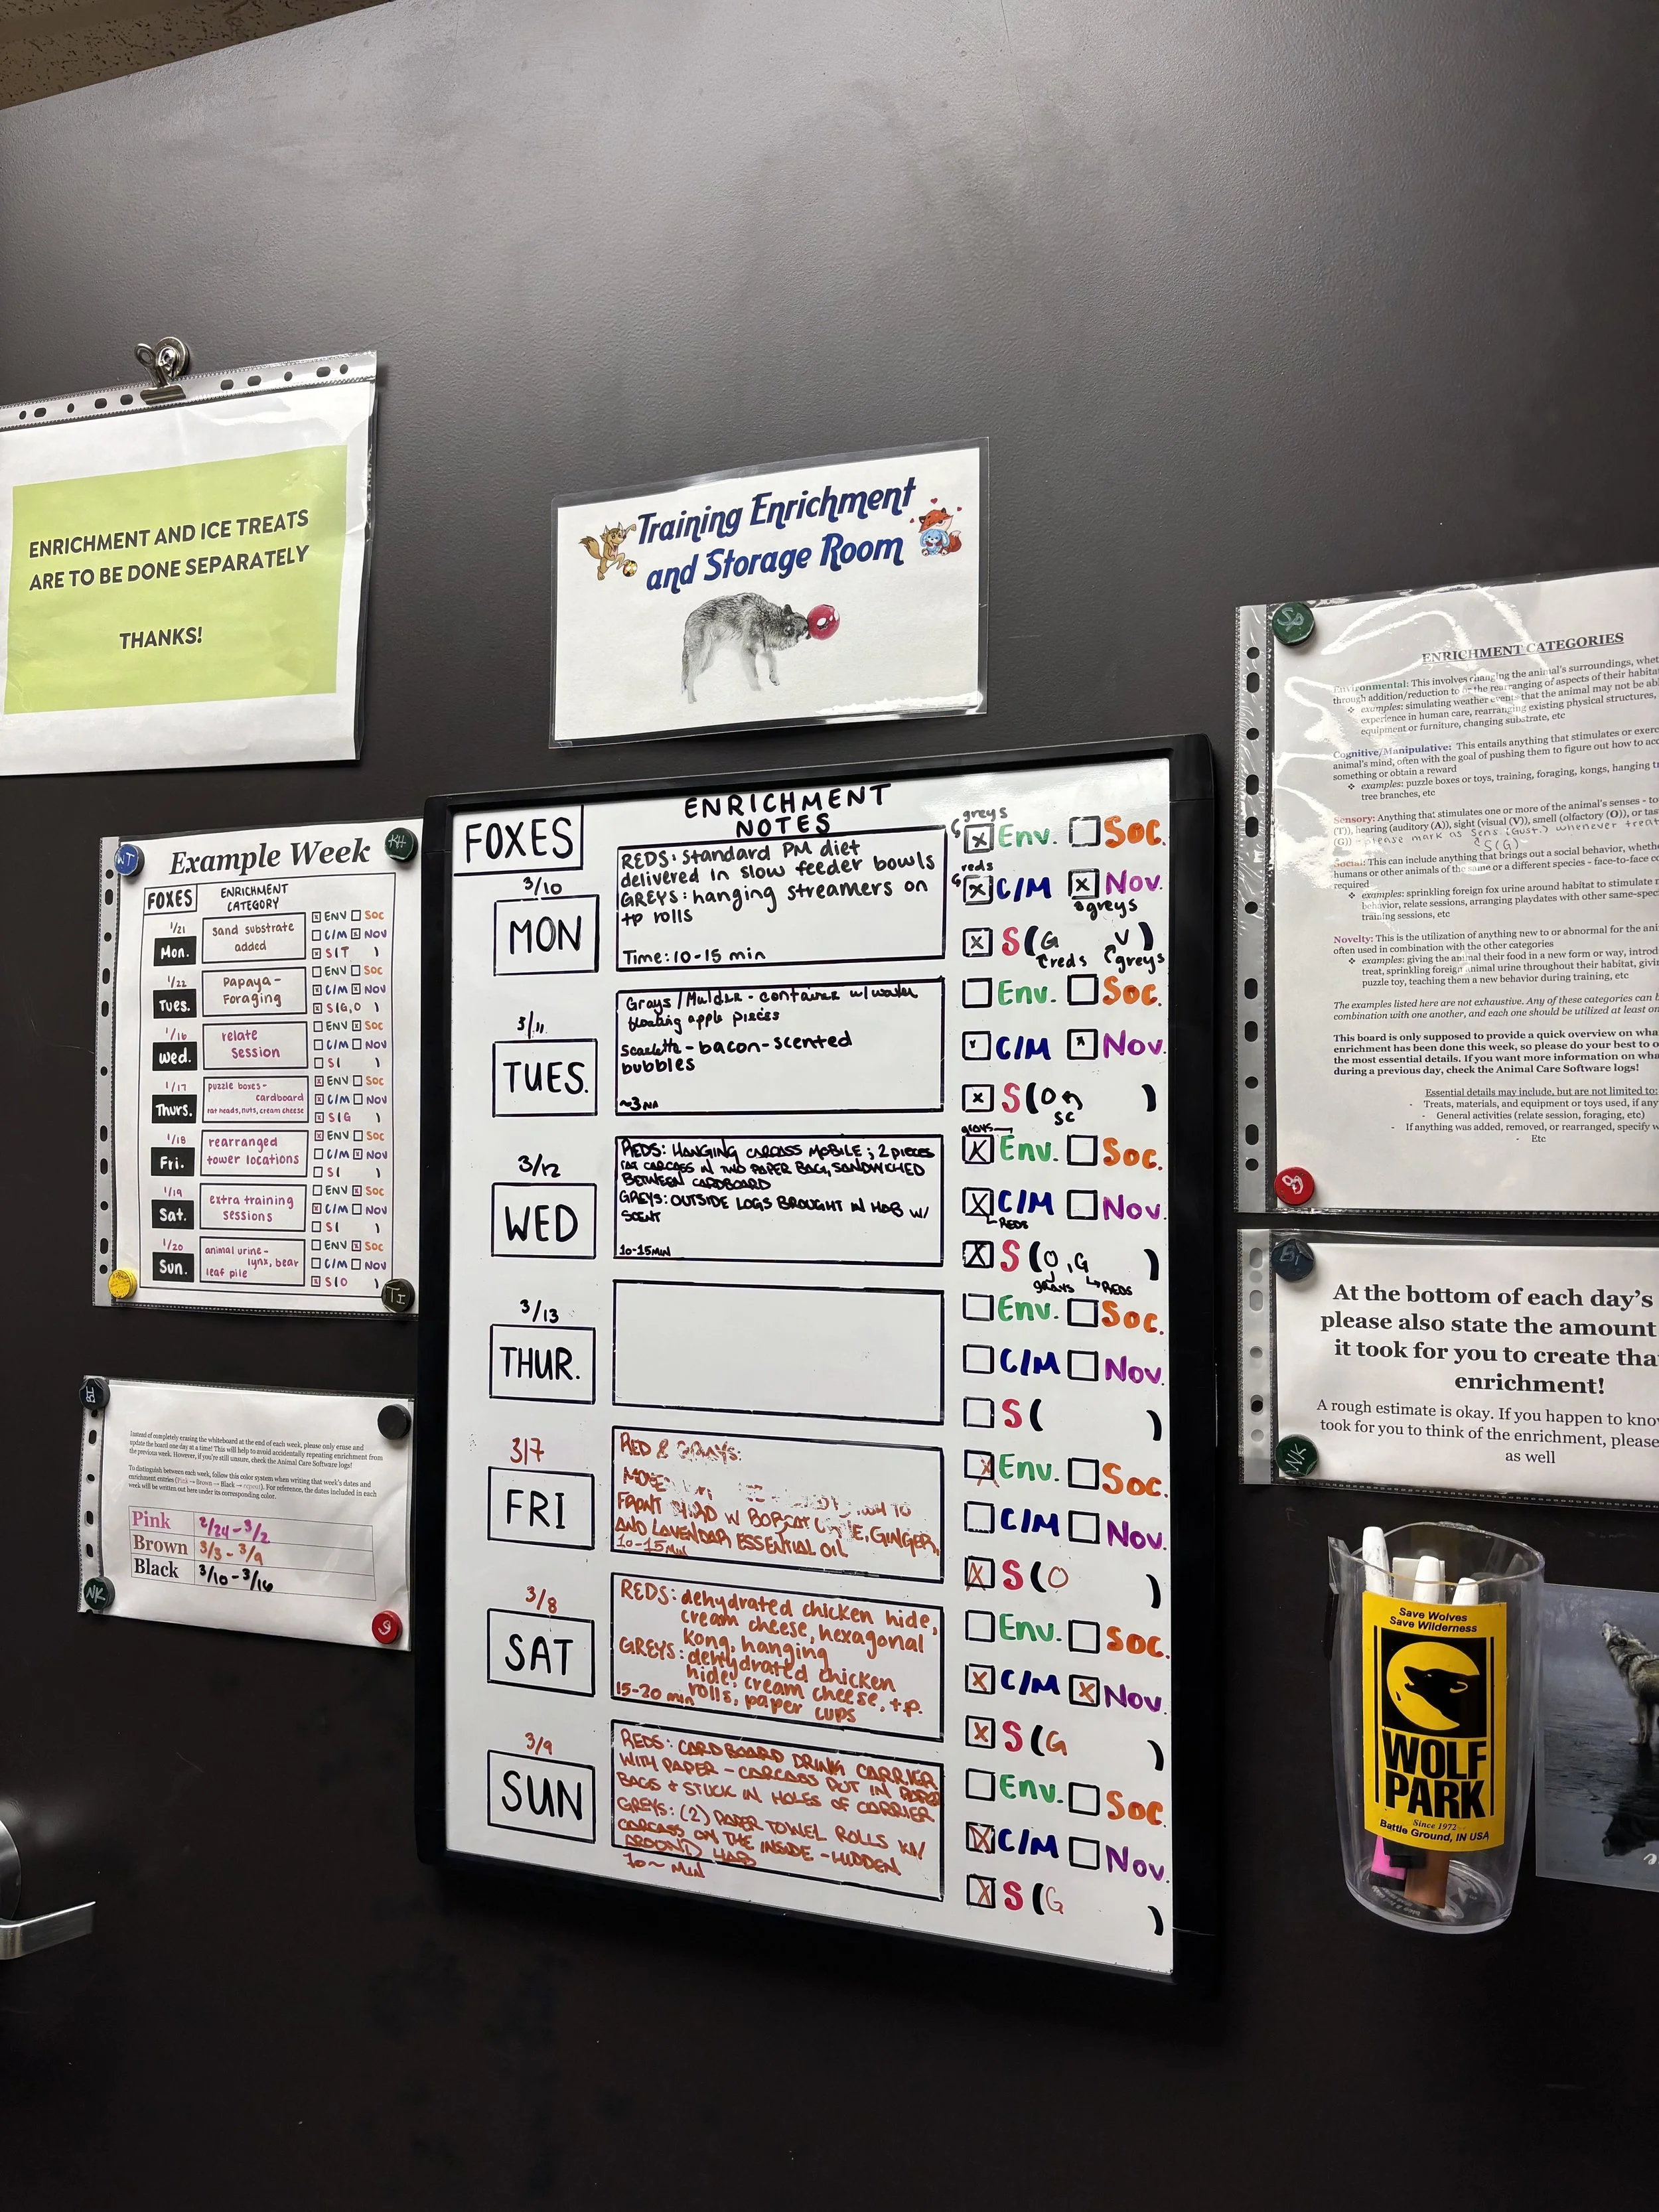 ENRICHMENT AND ICE TREATS
ARE TO BE DONE SEPARATELY
THANKS!
Training Enrichment
and Storage Room
WT
KH
Example Week
FOXES
ENRICHMENT
CATEGORY
1/21
Mon.
sand substrate
added
ENV SOC
C/M NOV
S(T )
1/22
Tues.
Papaya-
Foraging
ENV SOC
C/M NOV
S(G,O )
1/16
Wed.
relate
session
ENV SOC
C/M NOV
S( )
1/17
Thurs.
puzzle boxes-
cardboard
rat heads, nuts, cream cheese
ENV SOC
C/M NOV
S(G )
1/18
Fri.
rearranged
tower locations
ENV SOC
C/M NOV
S( )
1/19
Sat.
extra training
sessions
ENV SOC
C/M NOV
S( )
1/20
Sun.
animal urine-
lynx, bear
leaf pile
ENV SOC
C/M NOV
S(O )
Instead of completely erasing the whiteboard at the end of each week, please only erase and
update the board one day at a time! This will help to avoid accidentally repeating enrichment from
the previous week. However, if you're still unsure, check the Animal Care Software logs!
To distinguish between each week, follow this color system when writing that week's dates and
enrichment entries (Pink → Brown → Black → repeat). For reference, the dates included in each
week will be written out here under its corresponding color.
Pink 2/24-3/2
Brown 3/3-3/9
Black 3/10-3/16
NK
FOXES
ENRICHMENT
NOTES
3/10
MON
REDS: standard PM diet
delivered in slow feeder bowls
GREYS: hanging streamers on
tp rolls
Time: 10-15 min
greys
Env. Soc.
reds
C/M Nov.
greys
S(G V)
reds greys
3/11
TUES.
Grays/Mulder - container w/ water
floating apple pieces
Scarlette - bacon-scented
bubbles
Env. Soc.
C/M Nov.
S(O )
SC
3/12
WED
REDS: HANGING CARCASS MOBILE; 2 PIECES
RAT CARCASS IN TWO PAPER BAG, SANDWICHED
BETWEEN CARDBOARD
GREYS: OUTSIDE LOGS BROUGHT IN HAB W/
SCENT
10-15MIN
grays
Env. Soc.
C/M Nov.
REDS
S(O,G )
grays REDS
3/13
THUR.
Env. Soc.
C/M Nov.
S( )
3/7
FRI
RED & GRAYS:
TO
FRONT W BOBCAT GINGER,
AND LAVENDAR ESSENTIAL OIL
10-15MIN
Env. Soc.
C/M Nov.
S(O )
3/8
SAT
REDS: dehydrated chicken hide,
cream cheese, hexagonal
Kong, hanging
GREYS: dehydrated chicken
hide, cream cheese, t.p.
rolls, paper cups
15-20 min
Env. Soc.
C/M Nov.
S(G )
3/9
SUN
REDS: CARDBOARD DRINK CARRIER
WITH PAPER - CARCASS PUT IN PAPER
BAGS & STUCK IN HOLES OF CARRIER
GREYS: (2) PAPER TOWEL ROLLS W/
CARCASS ON THE INSIDE - HIDDEN
AROUND HAB
10~ MIN
Env. Soc.
C/M Nov.
S(G )
ENRICHMENT CATEGORIES
Environmental: This involves changing the animal's surroundings,
through addition/reduction to or the rearranging of aspects of their
examples: simulating weather events that the animal may not be
experience in human care, rearranging existing physical structures,
equipment or furniture, changing substrate, etc
Cognitive/Manipulative: This entails anything that stimulates or
animal's mind, often with the goal of pushing them to figure out how to
something or obtain a reward
examples: puzzle boxes or toys, training, foraging, kongs, hanging
tree branches, etc
Sensory: Anything that stimulates one or more of the animal's senses -
(T)), hearing (auditory (A)), sight (visual (V)), smell (olfactory (O)), or
(G)) - please mark as Sens (Gust.) whenever
S(G)
Social: This can include anything that brings out a social behavior,
humans or other animals of the same or a different species - face-to-face
required
examples: sprinkling foreign fox urine around habitat to stimulate
behavior, relate sessions, arranging playdates with other
training sessions, etc
Novelty: This is the utilization of anything new to or abnormal for the
often used in combination with the other categories
examples: giving the animal their food in a new form or way,
treat, sprinkling foreign animal urine throughout their habitat,
puzzle toy, teaching them a new behavior during training, etc
The examples listed here are not exhaustive. Any of these categories can
combination with one another, and each one should be utilized at least
This board is only supposed to provide a quick overview on
enrichment has been done this week, so please do your best to
the most essential details. If you want more information on
during a previous day, check the Animal Care Software logs!
Essential details may include, but are not limited to:
- Treats, materials, and equipment or toys used, if any
- General activities (relate session, foraging, etc)
- If anything was added, removed, or rearranged, specify
- Etc
At the bottom of each day's
please also state the amount
it took for you to create
enrichment!
A rough estimate is okay. If you happen to
took for you to think of the enrichment, please
as well
NK
Save Wolves
Save Wilderness
WOLF
PARK
Since 1972
Battle Ground, IN USA